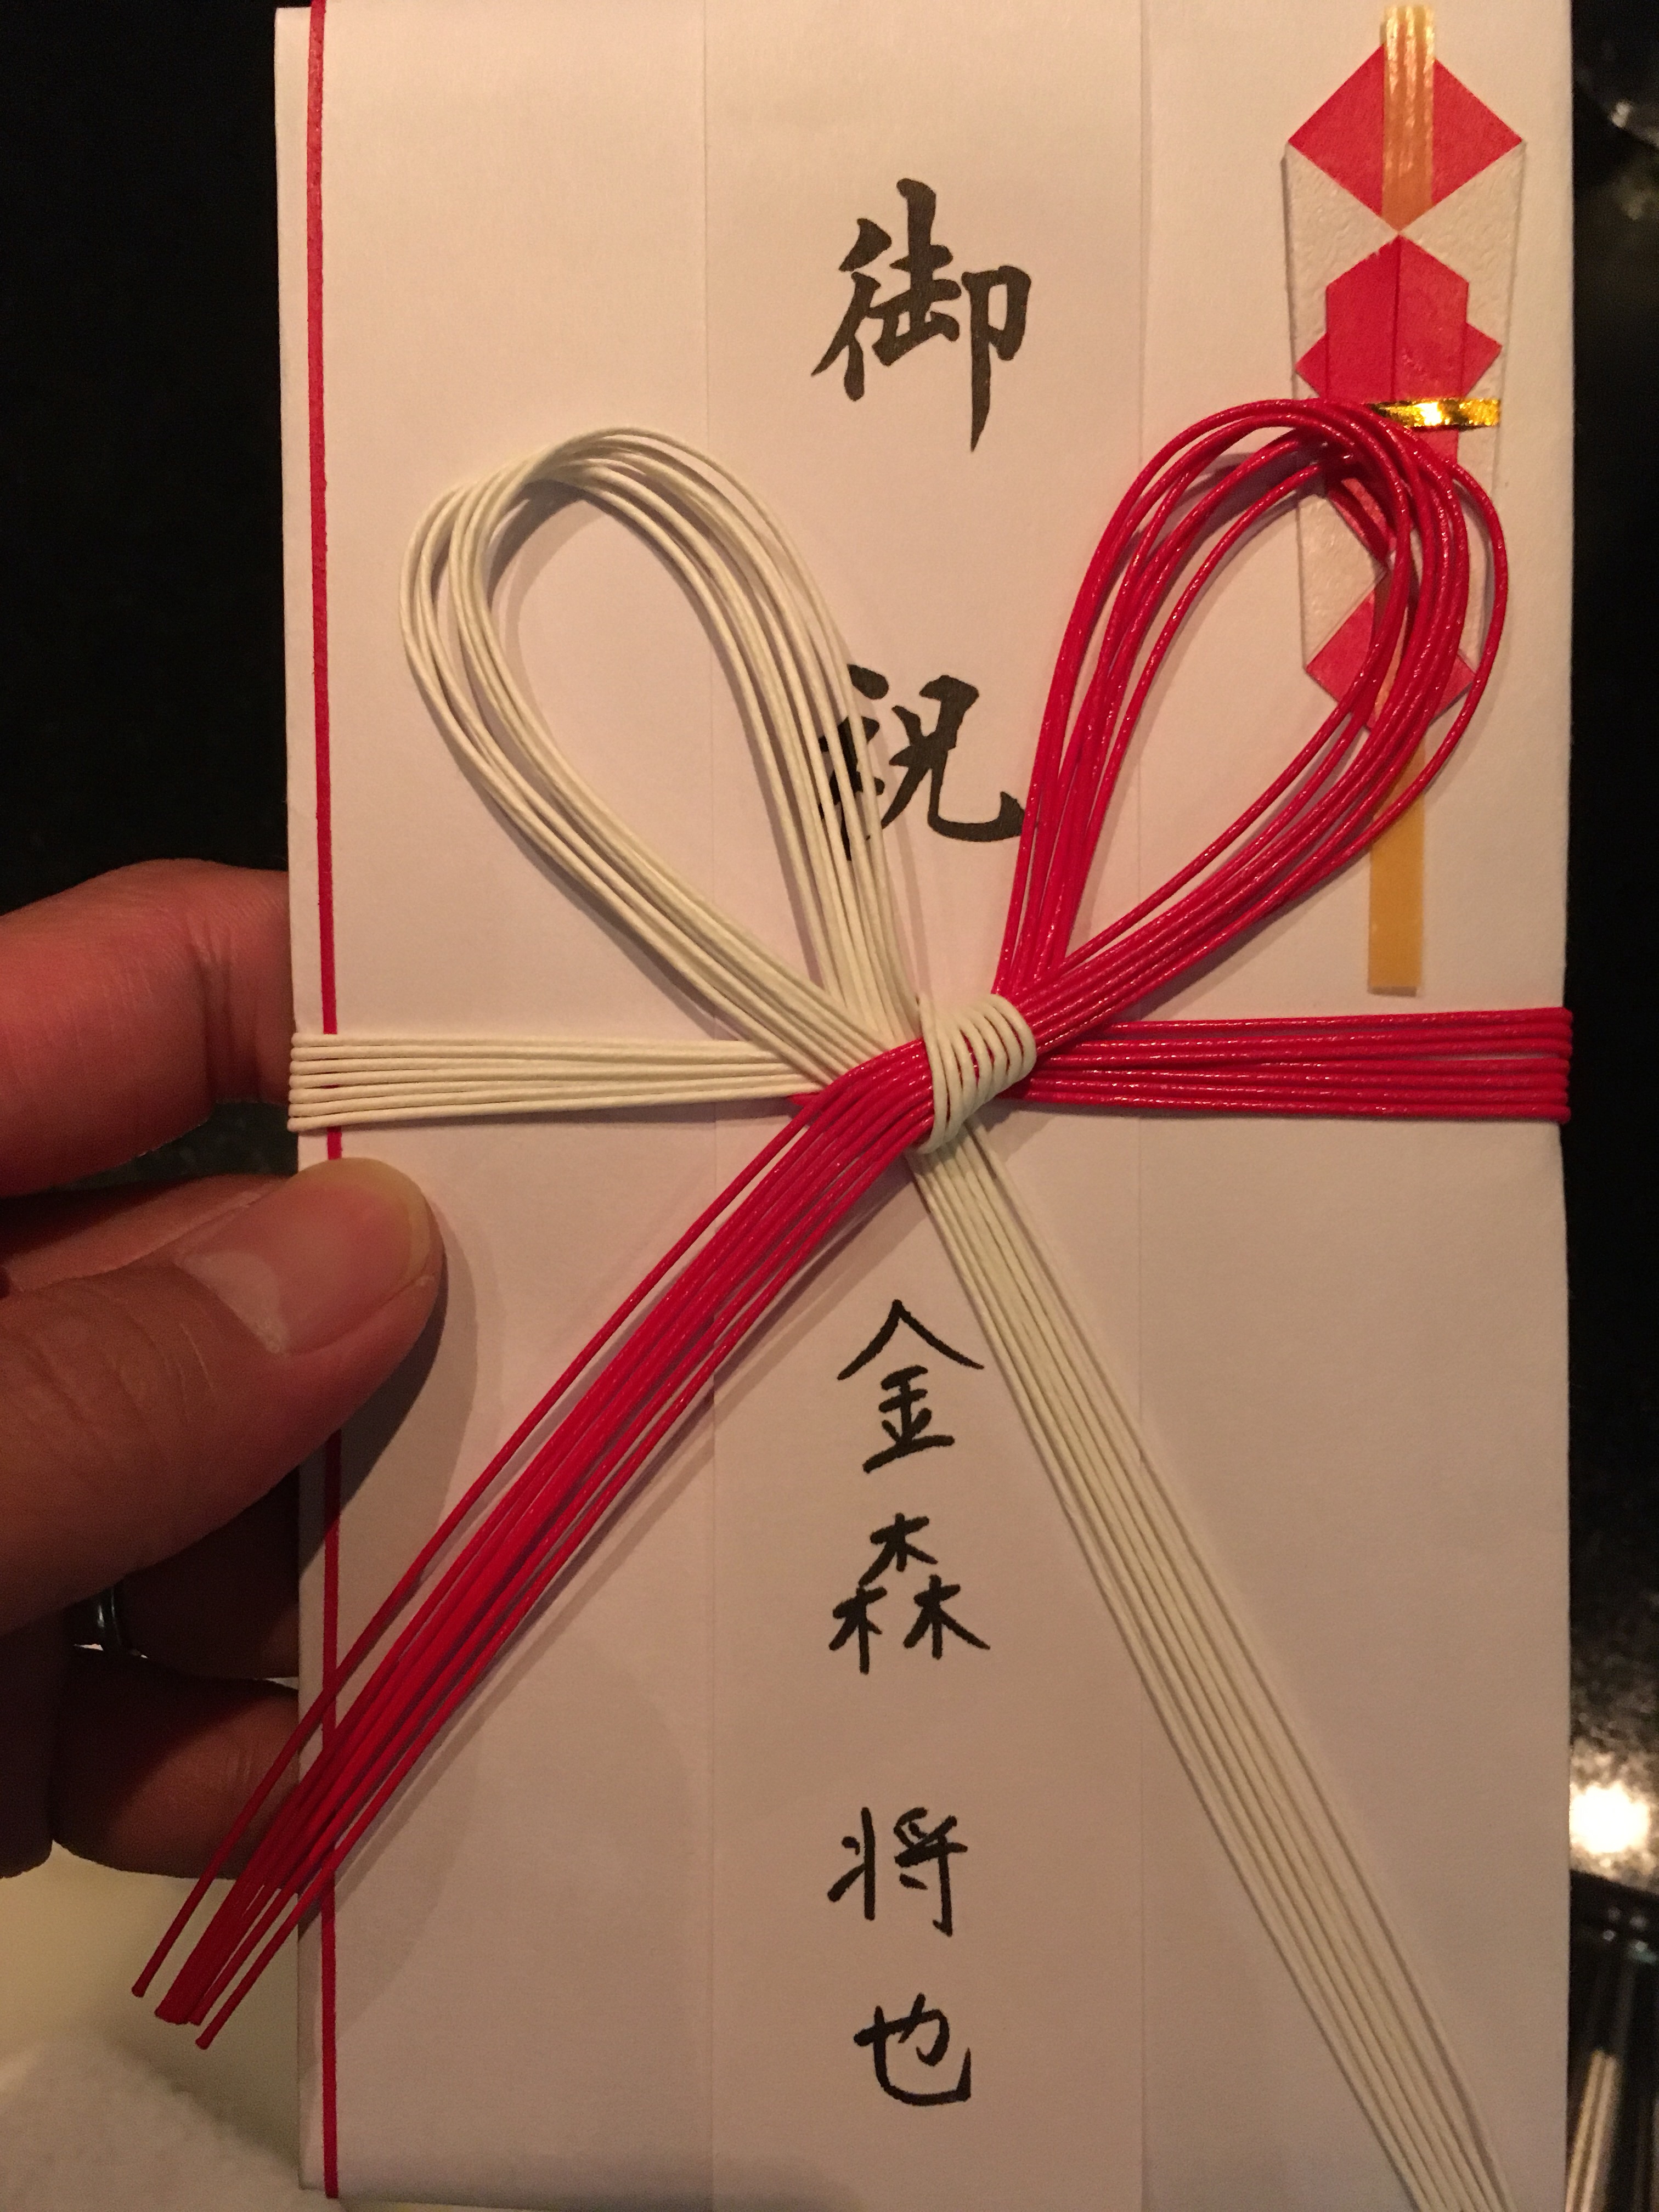 御祝
金森将也